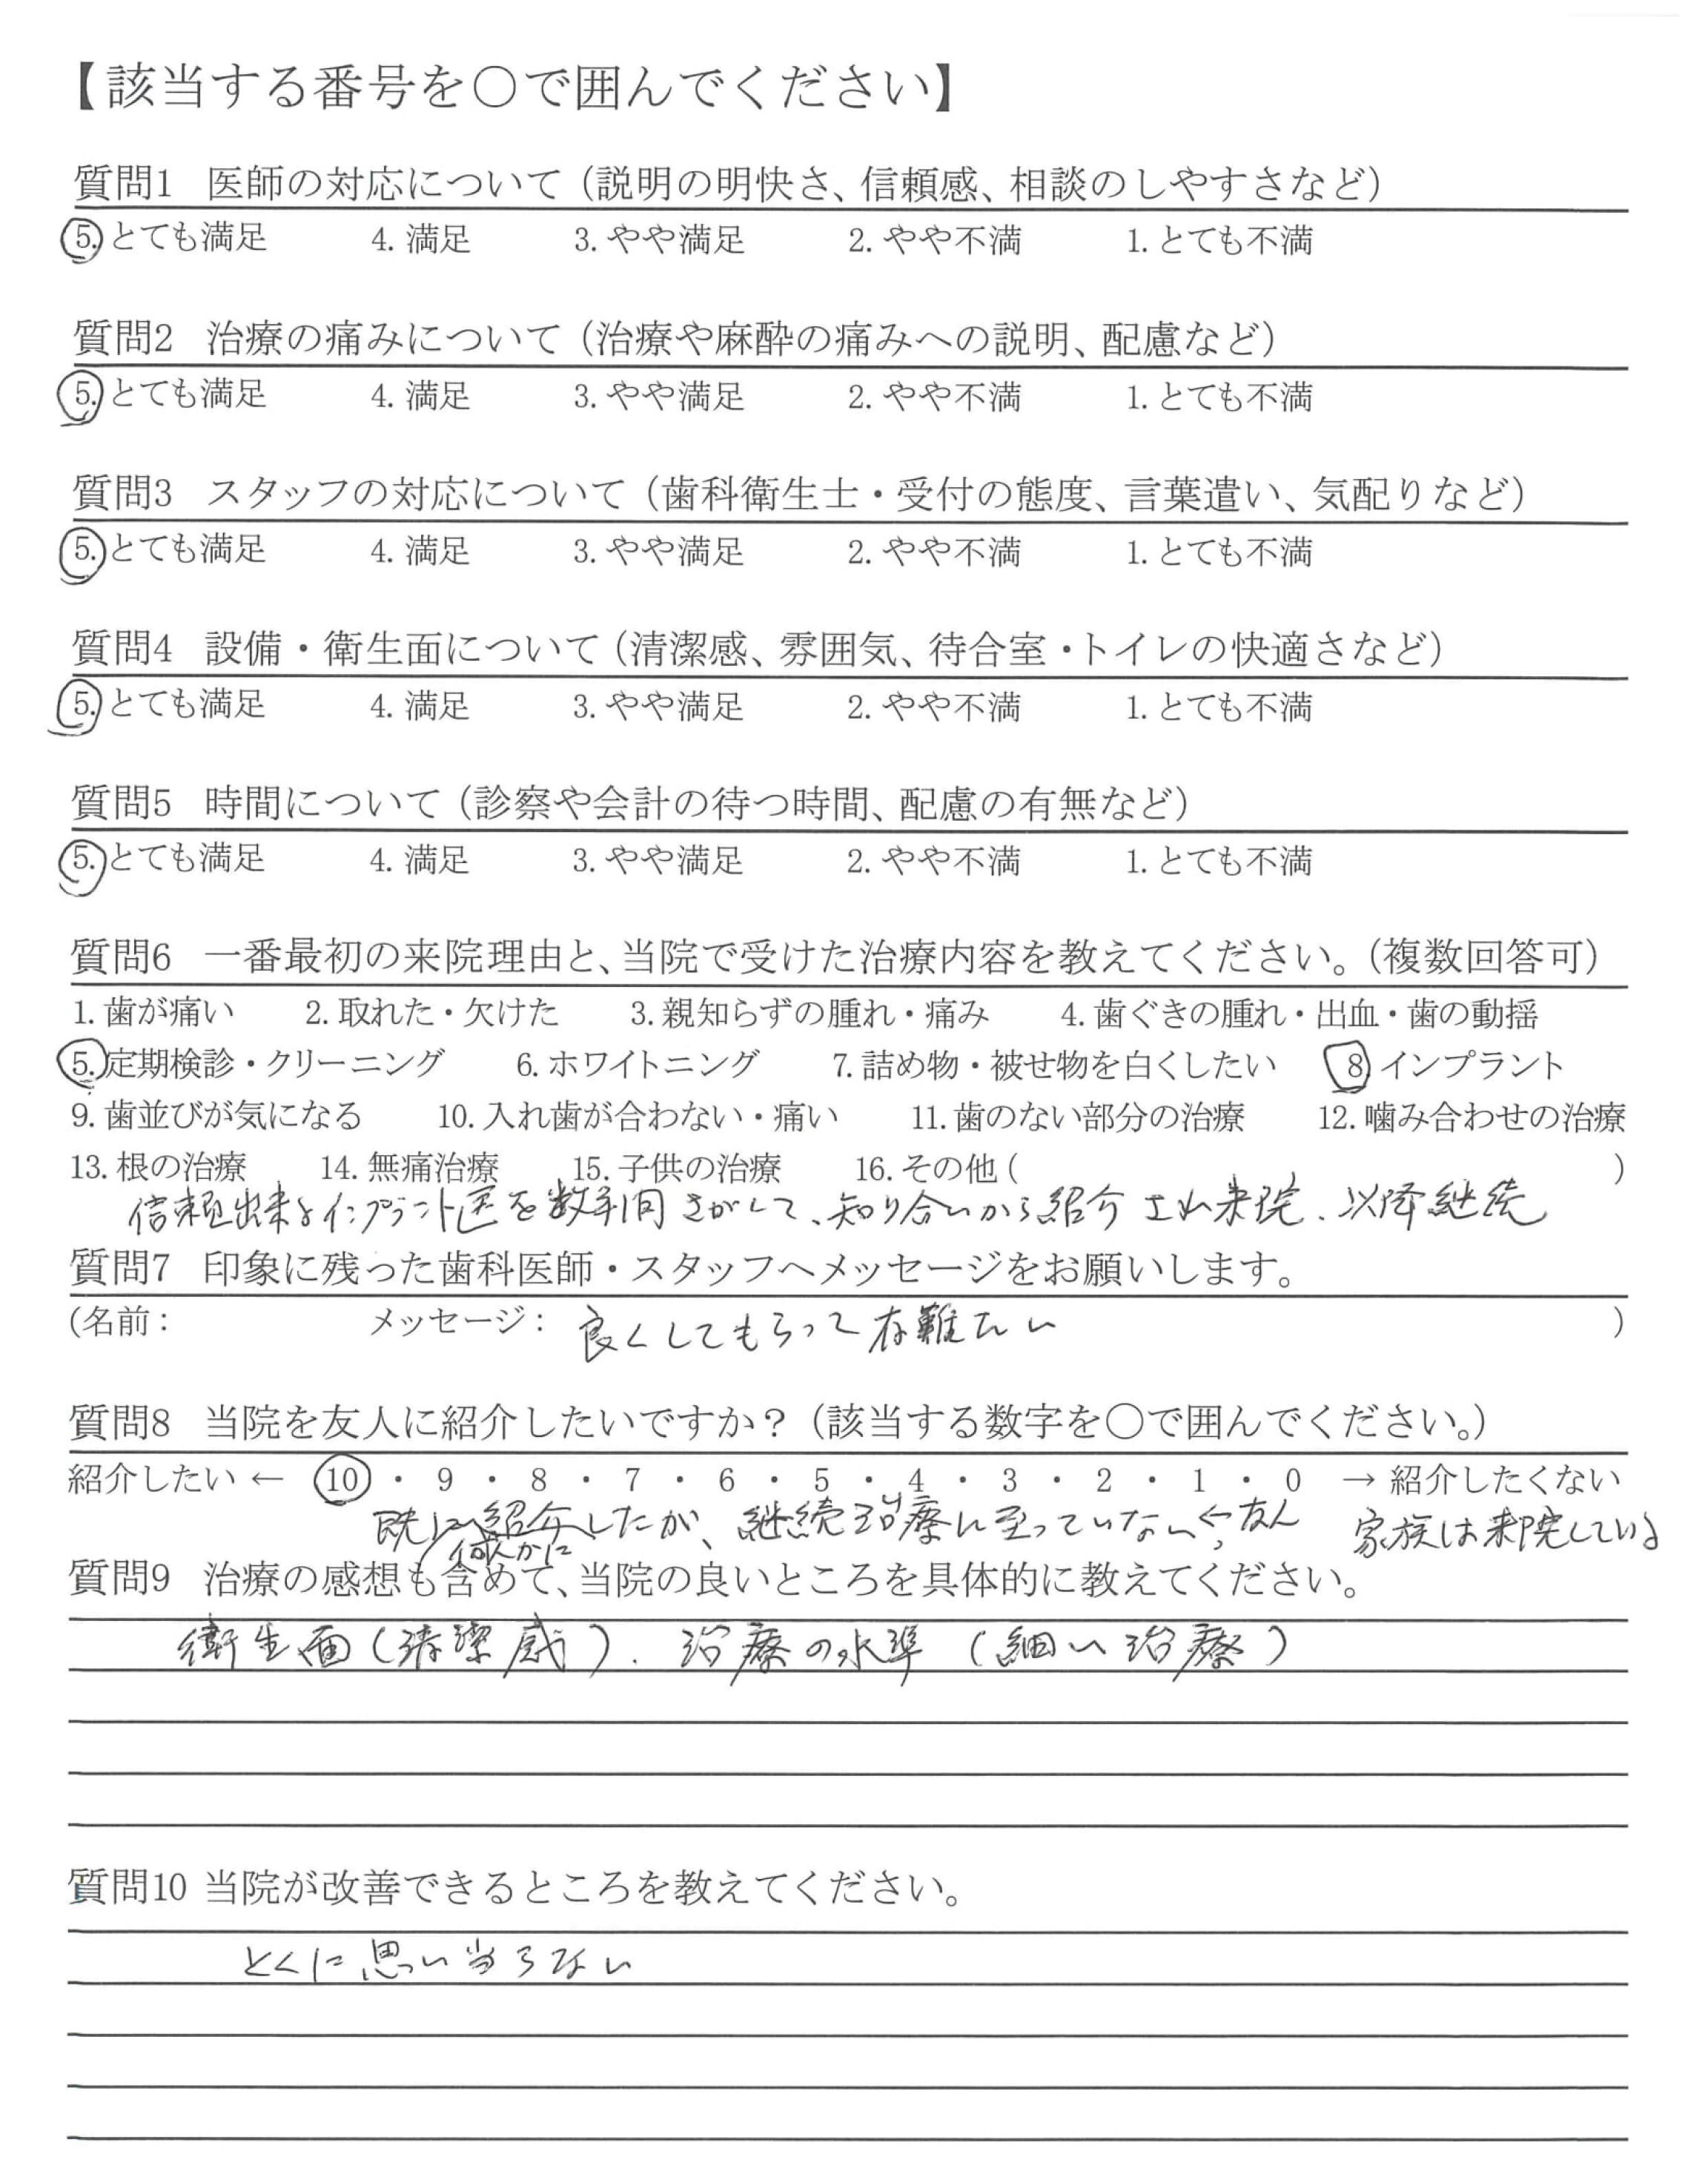 【該当する番号を○で囲んでください】
質問1 医師の対応について（説明の明快さ、信頼感、相談のしやすさなど）
5. とても満足 4. 満足 3. やや満足 2. やや不満 1. とても不満
質問2 治療の痛みについて（治療や麻酔の痛みへの説明、配慮など）
5. とても満足 4. 満足 3. やや満足 2. やや不満 1. とても不満
質問3 スタッフの対応について（歯科衛生士・受付の態度、言葉遣い、気配りなど）
5. とても満足 4. 満足 3. やや満足 2. やや不満 1. とても不満
質問4 設備・衛生面について（清潔感、雰囲気、待合室・トイレの快適さなど）
5. とても満足 4. 満足 3. やや満足 2. やや不満 1. とても不満
質問5 時間について（診察や会計の待つ時間、配慮の有無など）
5. とても満足 4. 満足 3. やや満足 2. やや不満 1. とても不満
質問6 一番最初の来院理由と、当院で受けた治療内容を教えてください。（複数回答可）
1. 歯が痛い 2. 取れた・欠けた 3. 親知らずの腫れ・痛み 4. 歯ぐきの腫れ・出血・歯の動揺
5. 定期検診・クリーニング 6. ホワイトニング 7. 詰め物・被せ物を白くしたい 8. インプラント
9. 歯並びが気になる 10. 入れ歯が合わない・痛い 11. 歯のない部分の治療 12. 噛み合わせの治療
13. 根の治療 14. 無痛治療 15. 子供の治療 16. その他（ ）
信頼出来るインプラント医を数年間さがして、知り合いから紹介され来院、以降継続
質問7 印象に残った歯科医師・スタッフへメッセージをお願いします。
（名前： メッセージ： 良くしてもらって有難たい ）
質問8 当院を友人に紹介したいですか？（該当する数字を○で囲んでください。）
紹介したい ← 10 ・ 9 ・ 8 ・ 7 ・ 6 ・ 5 ・ 4 ・ 3 ・ 2 ・ 1 ・ 0 → 紹介したくない
既に紹介したが、継続治療に至っていない←友人 家族は来院している
何人かに
質問9 治療の感想も含めて、当院の良いところを具体的に教えてください。
衛生面（清潔感）、治療の水準（細い治療）
質問10 当院が改善できるところを教えてください。
とくに思い当らない